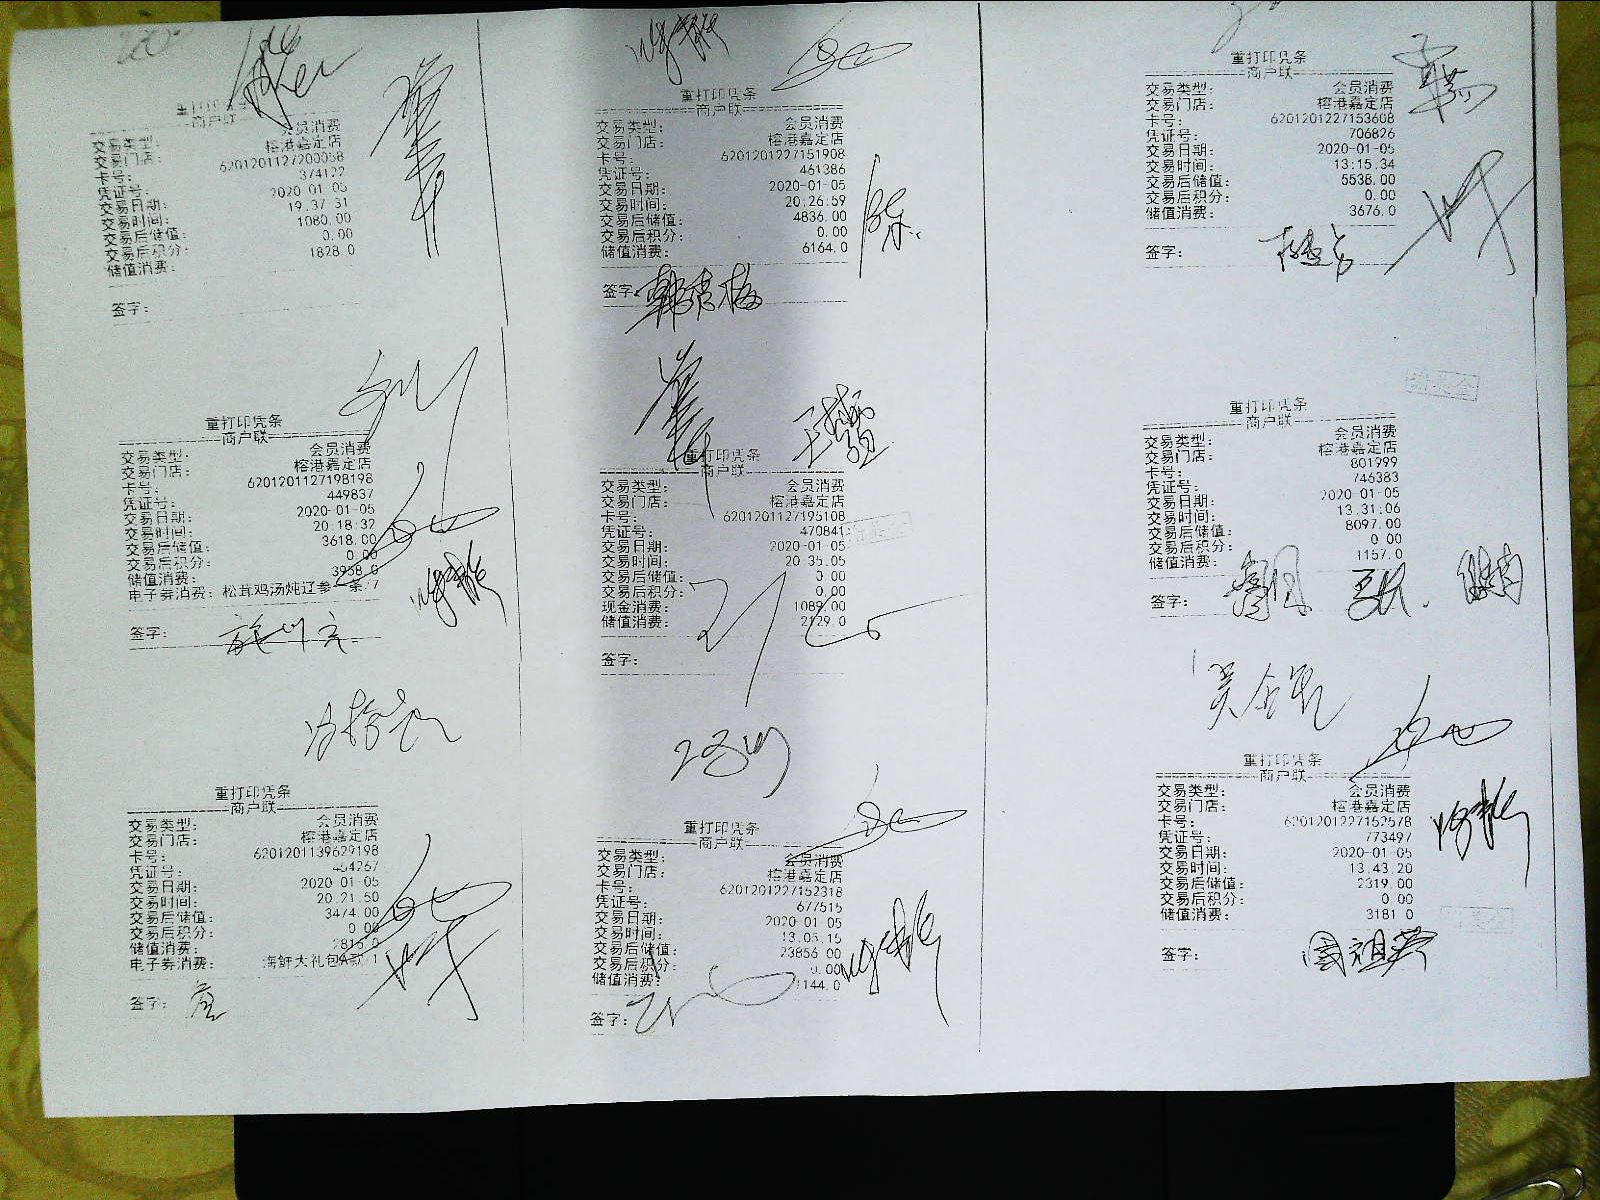 重打印凭条
商户联
交易类型： 会员消费
交易门店： 榕港嘉定店
卡号： 6201201127200058
凭证号： 374122
交易日期： 2020-01-05
交易时间： 19.37.31
交易后储值： 1080.00
交易后积分： 0.00
储值消费： 1828.0
签字：
重打印凭条
商户联
交易类型： 会员消费
交易门店： 榕港嘉定店
卡号： 6201201127198198
凭证号： 449837
交易日期： 2020-01-05
交易时间： 20:18:32
交易后储值： 3618.00
交易后积分： 0.00
储值消费：
电子券消费： 松茸鸡汤炖辽参一条:7
签字：
重打印凭条
商户联
交易类型： 会员消费
交易门店： 榕港嘉定店
卡号： 6201201139629198
凭证号： 454267
交易日期： 2020-01-05
交易时间： 20.21.50
交易后储值： 3474.00
交易后积分： 0.00
储值消费： 2815.0
电子券消费： 海鲜大礼包A款:1
签字：
重打印凭条
商户联
交易类型： 会员消费
交易门店： 榕港嘉定店
卡号： 6201201227151908
凭证号： 461386
交易日期： 2020-01-05
交易时间： 20:26:59
交易后储值： 4836.00
交易后积分： 0.00
储值消费： 6164.0
签字： 韩清梅
陈
重打印凭条
商户联
交易类型： 会员消费
交易门店： 榕港嘉定店
卡号： 6201201127195108
凭证号： 470841
交易日期： 2020-01-05
交易时间： 20.35.05
交易后储值： 0.00
交易后积分： 0.00
现金消费： 1089.00
储值消费： 2129.0
签字：
重打印凭条
商户联
交易类型： 会员消费
交易门店： 榕港嘉定店
卡号： 6201201227152318
凭证号： 677515
交易日期： 2020-01-05
交易时间： 13.05.15
交易后储值： 23856.00
交易后积分： 0.00
储值消费： 1144.0
签字：
重打印凭条
商户联
交易类型： 会员消费
交易门店： 榕港嘉定店
卡号： 6201201227153608
凭证号： 706826
交易日期： 2020-01-05
交易时间： 13:15.34
交易后储值： 5538.00
交易后积分： 0.00
储值消费： 3676.0
签字：
重打印凭条
商户联
交易类型： 会员消费
交易门店： 榕港嘉定店
卡号： 801999
凭证号： 746383
交易日期： 2020-01-05
交易时间： 13.31:06
交易后储值： 8097.00
交易后积分： 0.00
储值消费： 1157.0
签字：
重打印凭条
商户联
交易类型： 会员消费
交易门店： 榕港嘉定店
卡号： 6201201227152578
凭证号： 773497
交易日期： 2020-01-05
交易时间： 13.43.20
交易后储值： 2319.00
交易后积分： 0.00
储值消费： 3181.0
签字： 周祖英